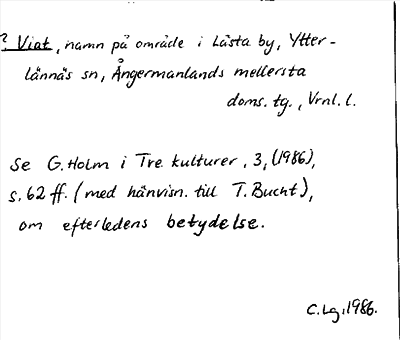 ? Viat, namn på område i Lästa by, Ytter-
lännäs sn, Ångermanlands mellersta
doms. tg., Vrnl. l.
Se G. Holm i Tre kulturer, 3, (1986),
s. 62 ff. (med hänvisn. till T. Bucht),
om efterledens betydelse.
C. Lg, 1986.